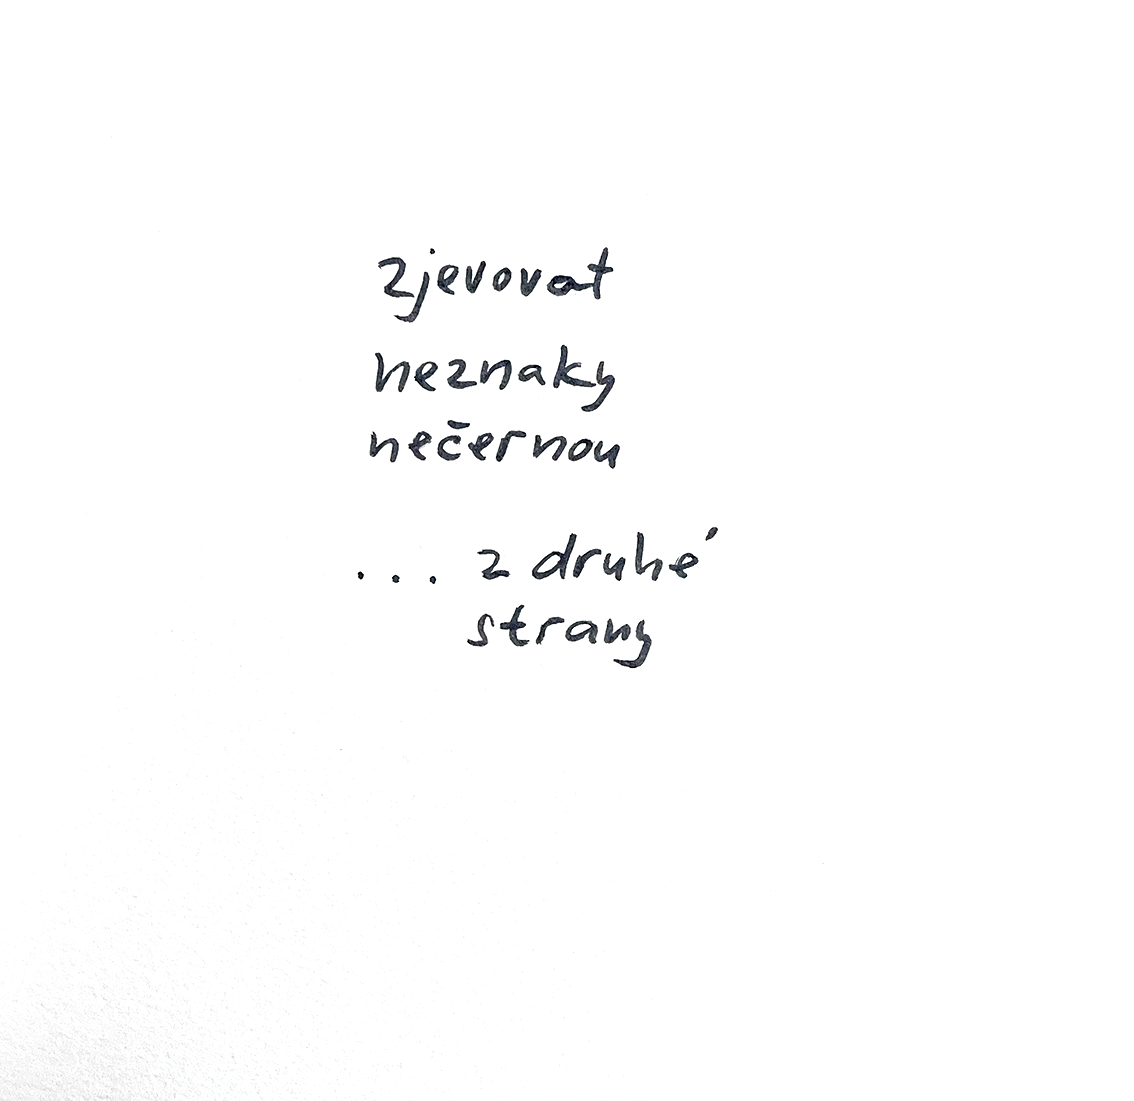 zjevovat
neznaky
nečernou
... z druhé
strany